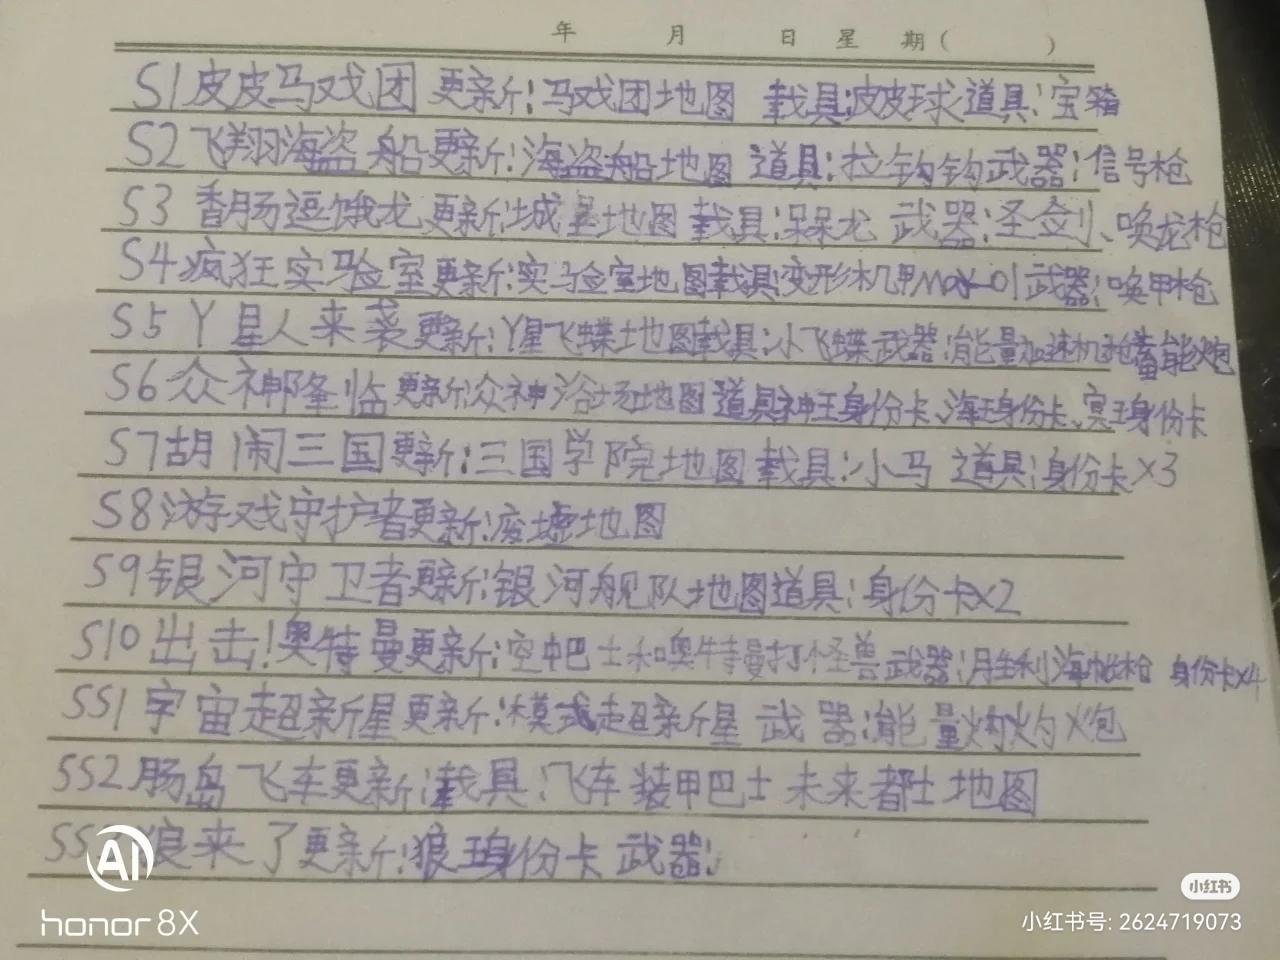 年 月 日 星 期( )
S1皮皮马戏团 更新:马戏团地图 载具:皮皮球道具:宝箱
S2飞翔海盗船更新:海盗船地图 道具:拉钩钩武器:信号枪
S3香肠逗饿龙更新:城堡地图 载具:呆呆龙 武器:圣剑、唤龙枪
S4疯狂实验室更新:实验室地图载具:变形机甲max-01武器:唤甲枪
S5丫星人来袭更新:丫星飞蝶地图载具:小飞蝶武器:能量加速机枪蓄能炮
S6众神降临更新:众神浴场地图道具神王身份卡、海王身份卡、冥王身份卡
S7胡闹三国更新:三国学院地图载具:小马 道具:身份卡X3
S8游戏守护者更新:废墟地图
S9银河守卫者更新:银河舰队地图道具:身份卡X2
S10出击!奥特曼更新:空中巴士和噢特曼打怪兽武器:胜利海帕枪 身份卡X4
SS1宇宙超新星更新:模式超新星 武器:能量灼灼炮
SS2肠岛飞车更新:载具:飞车 装甲巴士 未来都士地图
SS3狼来了更新:狼王身份卡 武器:
AI
honor 8X
小红书
小红书号: 2624719073